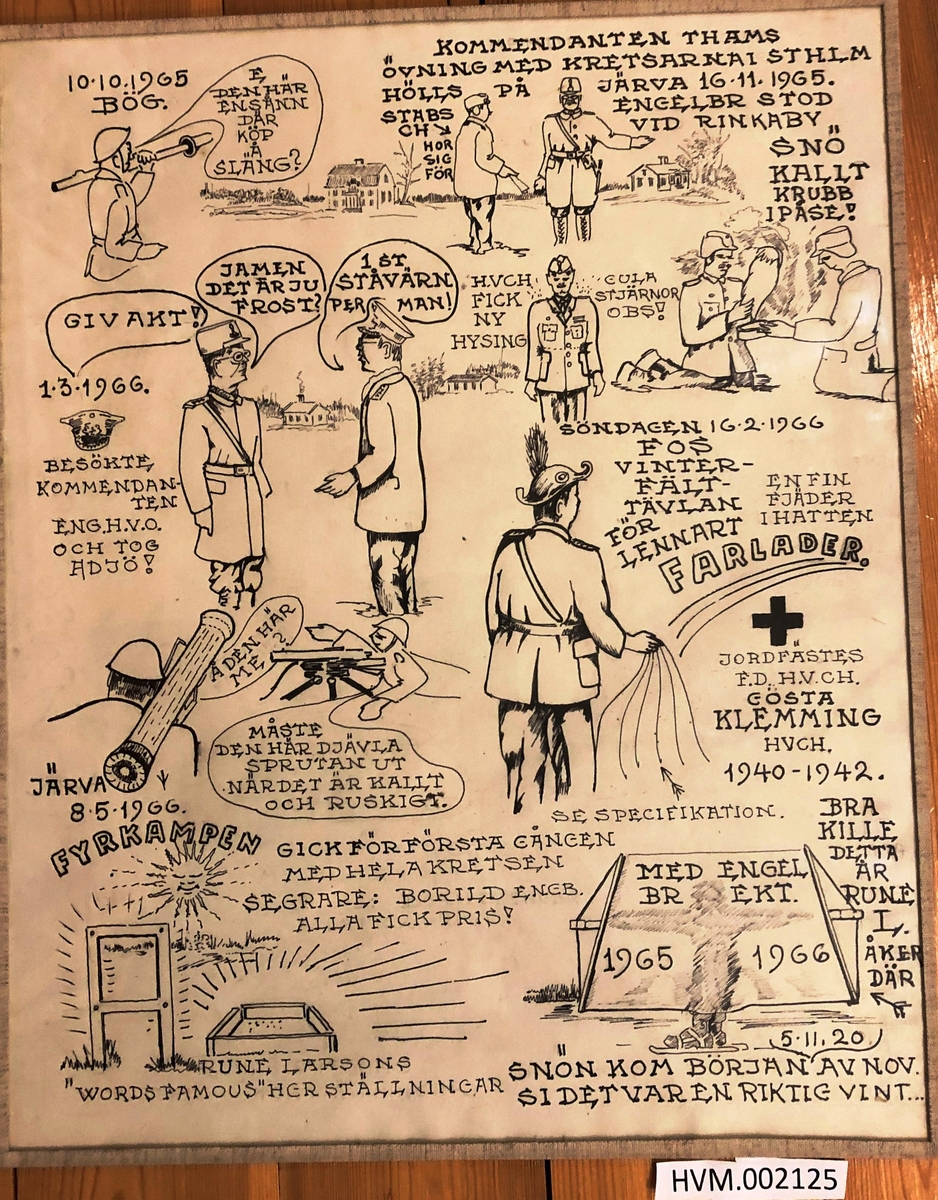 10.10.1965
BÖG.
E
DEN HÄR
EN SÅNN
DÄR
KÖP
Å
SLÄNG?
KOMMENDANTEN THAMS
ÖVNING MED KRETSARNA I STHLM
HÖLLS PÅ JÄRVA 16.11.1965.
STABS
CH
HÖR
SIG
FÖR
ENGELBR STOD
VID RINKABY
SNÖ
KALLT
KRUBB
I PÅSE!
GIV AKT!
JAMEN
DET ÄR JU
FROST?
1 ST
STÅVÄRN
PER MAN!
H.VCH
FICK
NY
HYSING
GULA
STJÄRNOR
OBS!
1.3.1966.
BESÖKTE
KOMMENDAN-
TEN
ENG.H.V.O.
OCH TOG
ADJÖ!
SÖNDAGEN 16.2.1966
FOS
VINTER-
FÄLT-
TÄVLAN
FÖR
LENNART
FARLADER.
EN FIN
FJÄDER
I HATTEN
JORDFÄSTES
F.D. H.V.CH.
GÖSTA
KLEMMING
HVCH.
1940-1942.
Å DEN HÄR
ME?
MÅSTE
DEN HÄR DJÄVLA
SPRUTAN UT
NÄR DET ÄR KALLT
OCH RUSKIGT.
JÄRVA
8.5.1966.
FYRKAMPEN
GICK FÖR FÖRSTA GÅNGEN
MED HELA KRETSEN
SEGRARE: BORILD ENGB.
ALLA FICK PRIS!
SE SPECIFIKATION.
BRA
KILLE
DETTA
ÄR
RUNE
L.
ÅKER
DÄR
MED ENGEL
BR EKT.
1965 1966
RUNE LARSONS
"WORDS FAMOUS" HERSTÄLLNINGAR
5.11.20
SNÖN KOM BÖRJAN AV NOV.
SI DET VAR EN RIKTIG VINT...
HVM.002125